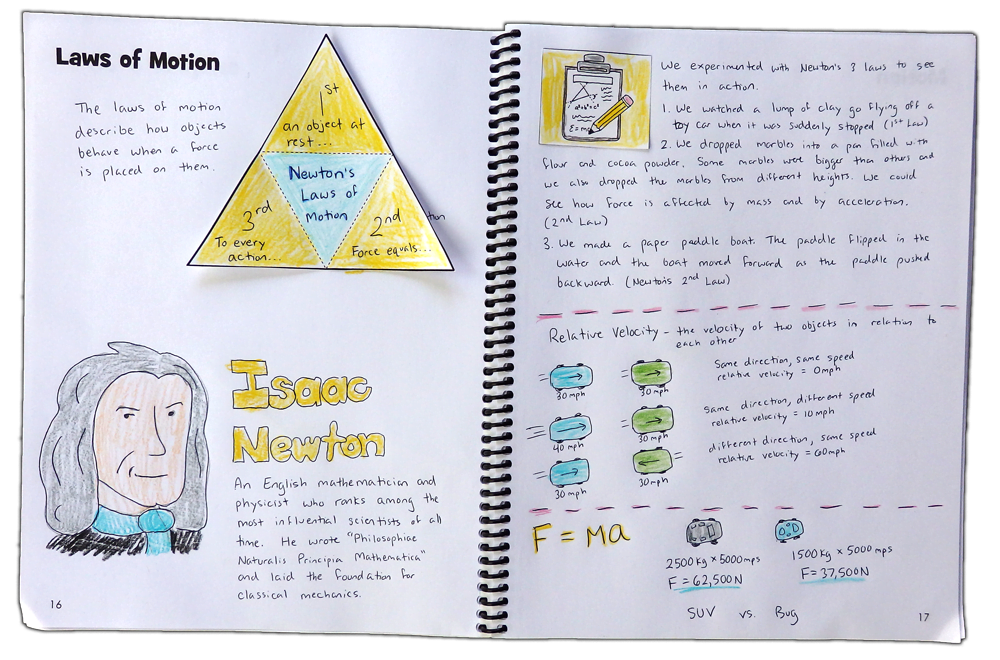 Laws of Motion
The laws of motion
describe how objects
behave when a force
is placed on them.
1st
an object at
rest...
Newton's
Laws of
Motion
3rd
To every
action...
2nd
Force equals...
tion
Isaac
Newton
An English mathematician and
physicist who ranks among the
most influential scientists of all
time. He wrote "Philosophiae
Naturalis Principia Mathematica"
and laid the foundation for
classical mechanics.
16
a²+b²=c²
E=mc
We experimented with Newton's 3 laws to see
them in action.
1. We watched a lump of clay go flying off a
toy car when it was suddenly stopped (1st Law)
2. We dropped marbles into a pan filled with
flour and cocoa powder. Some marbles were bigger than others and
we also dropped the marbles from different heights. We could
see how force is affected by mass and by acceleration.
(2nd Law)
3. We made a paper paddle boat. The paddle flipped in the
water and the boat moved forward as the paddle pushed
backward. (Newton's 2nd Law)
Relative Velocity - the velocity of two objects in relation to
each other
30 mph
30 mph
Same direction, same speed
relative velocity = 0mph
40 mph
30 mph
same direction, different speed
relative velocity = 10 mph
30 mph
30 mph
different direction, same speed
relative velocity = 60mph
F = Ma
2500 Kg × 5000 mps
F = 62,500 N
1500 Kg × 5000 mps
F = 37,500N
SUV vs. Bug
17